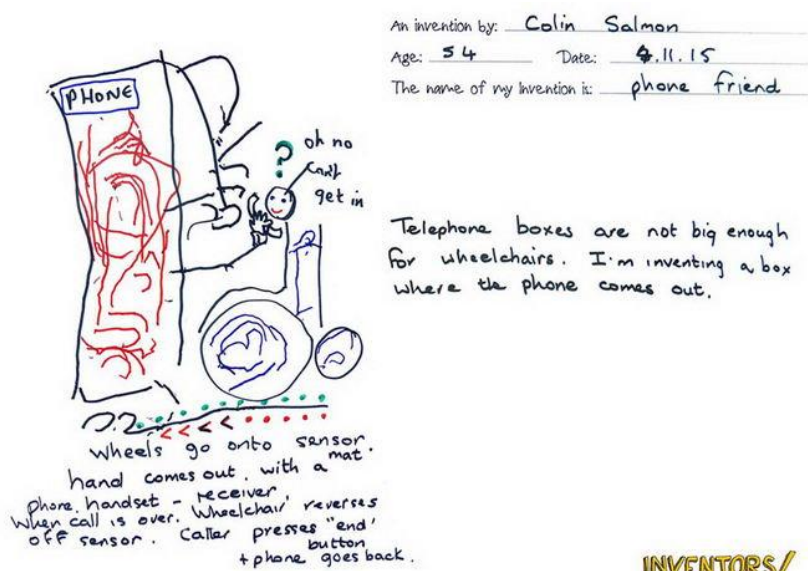 An invention by: Colin Salmon
Age: 54 Date: 4.11.15
The name of my invention is: phone friend
PHONE
?
oh no
can't
get in
Telephone boxes are not big enough
for wheelchairs. I'm inventing a box
where the phone comes out.
wheels go onto sensor
mat.
hand comes out, with a
phone handset - receiver
When call is over. Wheelchair reverses
off sensor. Caller presses "end"
button
+ phone goes back.
INVENTORS!